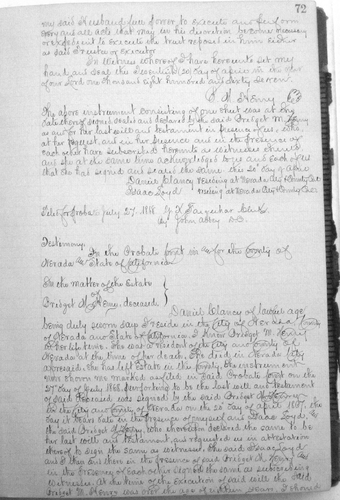 72
my said Husband full power to execute and perform
every and all acts that may in his discretion become necessary
or expedient to execute the trust reposed in him herein
as said Executor
In Witness whereof I have hereunto set my
hand and seal the day of April in the year of
our Lord one thousand eight hundred and sixty seven
B. M. Henry
The above instrument consisting of one sheet was at the
date thereof signed sealed and declared by the said Bridget M. Henry
as and for her last will and testament in presence of us, who,
at her request, and in her presence and in the presence of
each other have subscribed our names as witnesses thereto
and she at the same time acknowledged to us and each of us
that she had signed and sealed the same this 20" day of April
Daniel Clancy residing at Nevada City County Cal.
Isaac Loyd residing at Nevada City County Cal.
Filed for Probate July 27. 1868. Clerk
By John D.C.
Testimony
In the Probate Court in and for the County of
Nevada and State of California.
In the Matter of the Estate
of
Bridget M. Henry, deceased
Daniel Clancy of lawful age
being duly sworn says I reside in the City of Nevada, County
of Nevada and State of California, I knew Bridget M. Henry
in her life time. She was a resident of the City and County of
Nevada at the time of her death. She died in Nevada City
aforesaid. She has left estate in this County, the instrument
now shown me marked as filed in said Probate Court on the
27" day of July 1868, purporting to be the last will and testament
of said deceased was signed by the said Bridget M. Henry
in the City and County of Nevada on the 20" day of April 1867, the
day it bears date in the presence of myself and Isaac Loyd, and
the said Bridget M. Henry, who thereupon declared the same to be
her last will and testament, and requested us in attestation
thereof to sign the same as witnesses. The said Isaac Loyd
and I then and there in the presence of said Bridget M. Henry and
in the presence of each other signed the same as subscribing
witnesses. At the time of the execution of said will the said
Bridget M. Henry was over the age of eighteen years. I should